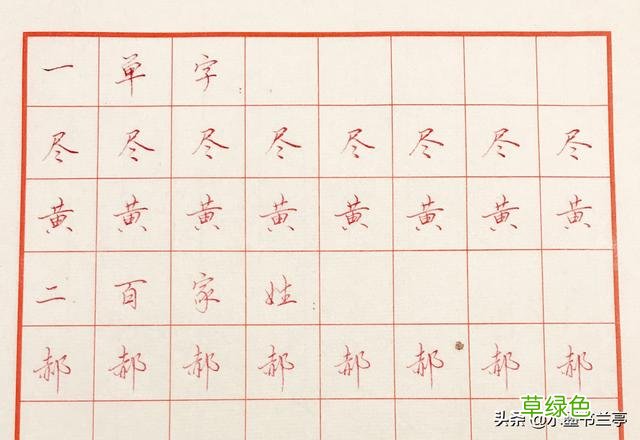 一单字
尽尽尽尽尽尽尽尽
黄黄黄黄黄黄黄黄
二百家姓
郝郝郝郝郝郝郝郝
草绿色
头条@小墨书兰亭